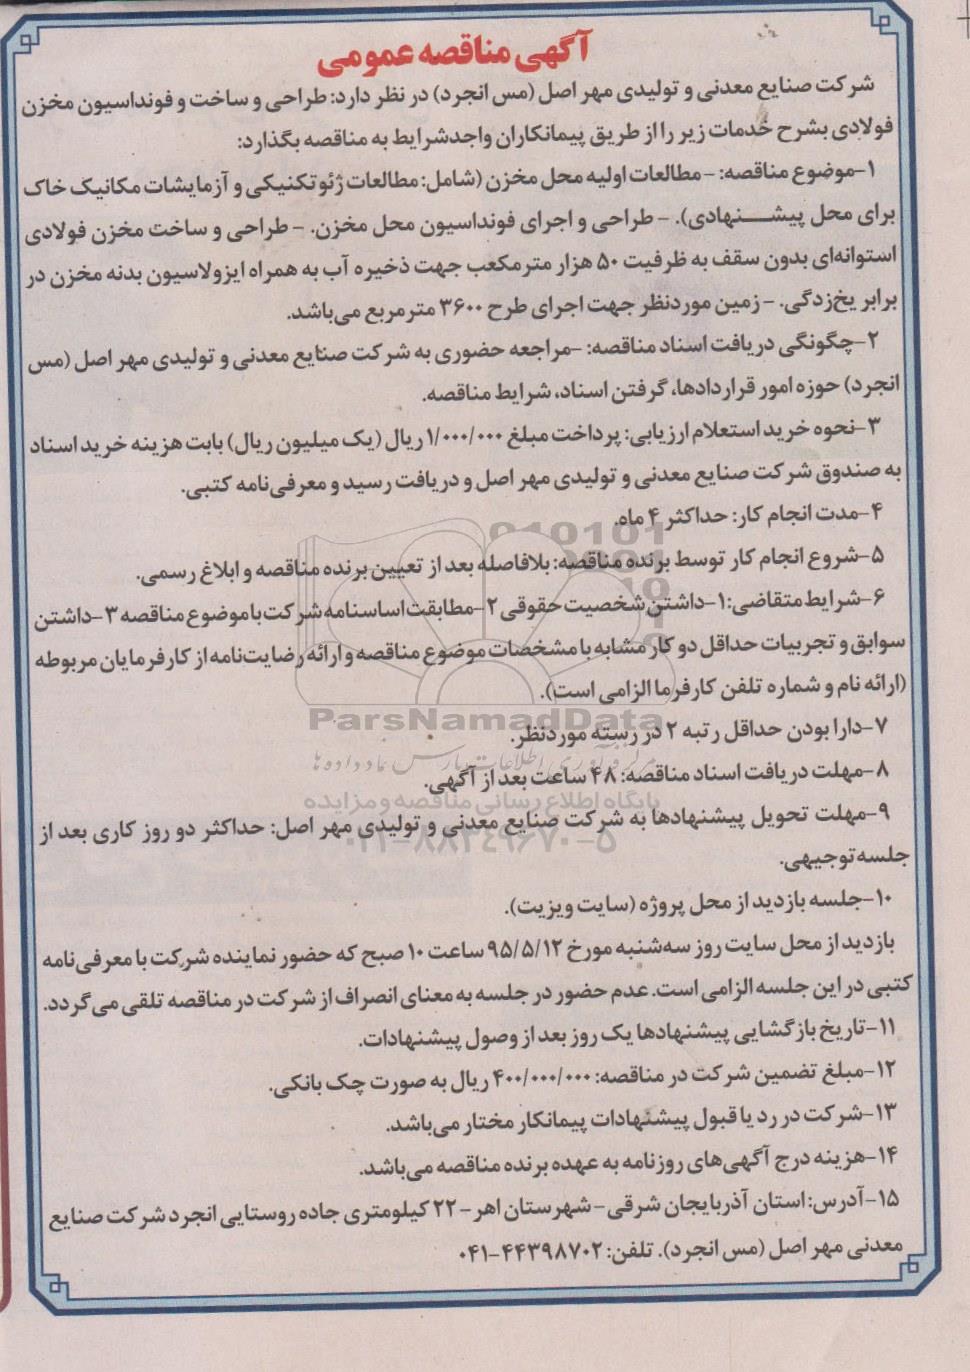 آگهی مناقصه عمومی
شرکت صنایع معدنی و تولیدی مهر اصل (مس انجرد) در نظر دارد: طراحی و ساخت و فونداسیون مخزن
فولادی بشرح خدمات زیر را از طریق پیمانکاران واجدشرایط به مناقصه بگذارد:
۱-موضوع مناقصه: - مطالعات اولیه محل مخزن (شامل: مطالعات ژئوتکنیکی و آزمایشات مکانیک خاک
برای محل پیشـــنهادی). - طراحی و اجرای فونداسیون محل مخزن. - طراحی و ساخت مخزن فولادی
استوانه‌ای بدون سقف به ظرفیت ۵۰ هزار مترمکعب جهت ذخیره آب به همراه ایزولاسیون بدنه مخزن در
برابر یخ‌زدگی. - زمین موردنظر جهت اجرای طرح ۳۶۰۰ مترمربع می‌باشد.
۲-چگونگی دریافت اسناد مناقصه: -مراجعه حضوری به شرکت صنایع معدنی و تولیدی مهر اصل (مس
انجرد) حوزه امور قراردادها، گرفتن اسناد، شرایط مناقصه.
۳-نحوه خرید استعلام ارزیابی: پرداخت مبلغ ۱/۰۰۰/۰۰۰ ریال (یک میلیون ریال) بابت هزینه خرید اسناد
به صندوق شرکت صنایع معدنی و تولیدی مهر اصل و دریافت رسید و معرفی‌نامه کتبی.
۴-مدت انجام کار: حداکثر ۴ ماه.
۵-شروع انجام کار توسط برنده مناقصه: بلافاصله بعد از تعیین برنده مناقصه و ابلاغ رسمی.
۶-شرایط متقاضی: ۱-داشتن شخصیت حقوقی ۲-مطابقت اساسنامه شرکت با موضوع مناقصه ۳-داشتن
سوابق و تجربیات حداقل دو کار مشابه با مشخصات موضوع مناقصه و ارائه رضایت‌نامه از کارفرمایان مربوطه
(ارائه نام و شماره تلفن کارفرما الزامی است).
۷-دارا بودن حداقل رتبه ۲ در رسته موردنظر.
۸-مهلت دریافت اسناد مناقصه: ۴۸ ساعت بعد از آگهی.
۹-مهلت تحویل پیشنهادها به شرکت صنایع معدنی و تولیدی مهر اصل: حداکثر دو روز کاری بعد از
جلسه توجیهی.
۱۰-جلسه بازدید از محل پروژه (سایت ویزیت).
بازدید از محل سایت روز سه‌شنبه مورخ ۹۵/۵/۱۲ ساعت ۱۰ صبح که حضور نماینده شرکت با معرفی‌نامه
کتبی در این جلسه الزامی است. عدم حضور در جلسه به معنای انصراف از شرکت در مناقصه تلقی می‌گردد.
۱۱-تاریخ بازگشایی پیشنهادها یک روز بعد از وصول پیشنهادات.
۱۲-مبلغ تضمین شرکت در مناقصه: ۴۰۰/۰۰۰/۰۰۰ ریال به صورت چک بانکی.
۱۳-شرکت در رد یا قبول پیشنهادات پیمانکار مختار می‌باشد.
۱۴-هزینه درج آگهی‌های روزنامه به عهده برنده مناقصه می‌باشد.
۱۵-آدرس: استان آذربایجان شرقی- شهرستان اهر- ۲۲ کیلومتری جاده روستایی انجرد شرکت صنایع
معدنی مهر اصل (مس انجرد). تلفن: ۴۴۳۹۸۷۰۲-۰۴۱
ParsNamadData
مرکز فرآوری اطلاعات پارس نماد داده‌ها
پایگاه اطلاع رسانی مناقصه و مزایده
۰۲۱-۸۸۳۴۹۶۷۰-۵